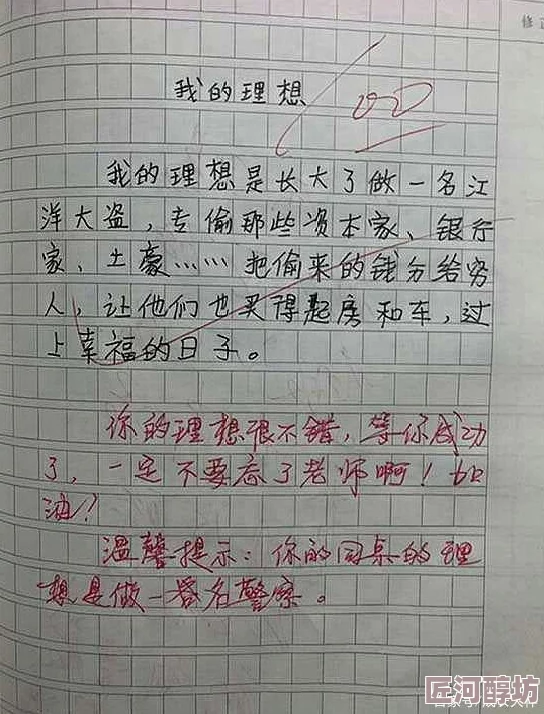 修
我的理想
我的理想是长大了做一名江
洋大盗，专偷那些资本家、银行
家、土豪……把偷来的钱分给穷
人，让他们也买得起房和车，过
上幸福的日子。
你的理想很不错，等你成功
了，一定不要忘了老师啊！加
油！
温馨提示：你的同桌的理
想是做一名警察。
匠河醇坊